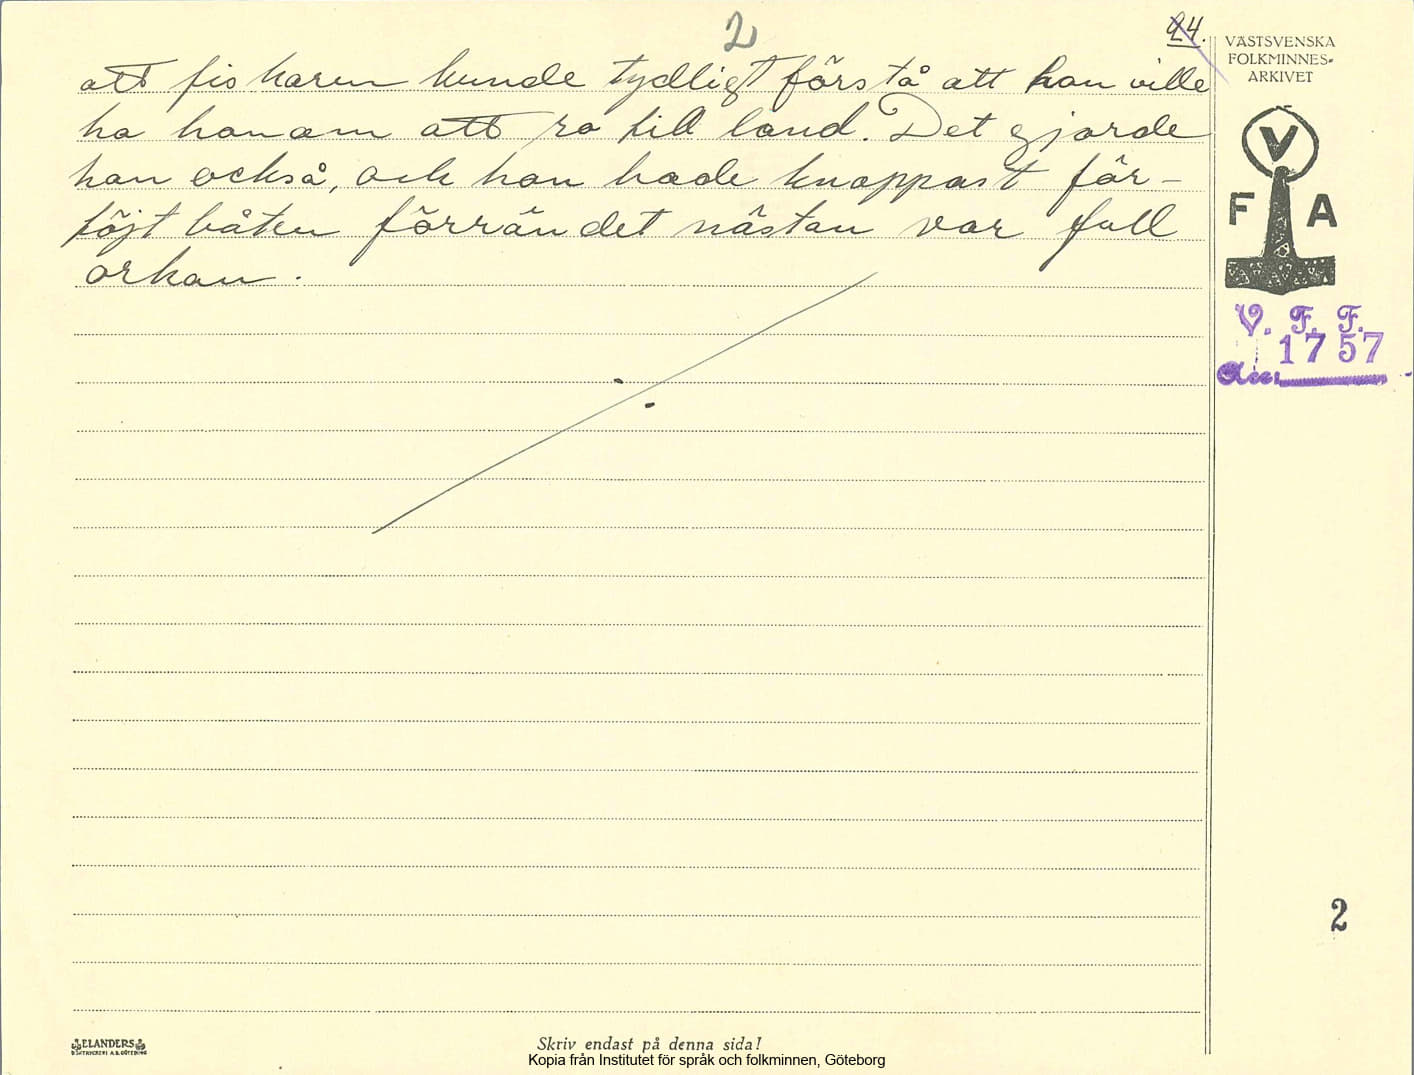 2
24.
att fiskaren kunde tydligt förstå att han ville
ha honom att ro till land. Det gjorde
han också, och han hade knappast för-
töjt båten förrän det nästan var full
orkan.
VÄSTSVENSKA
FOLKMINNES-
ARKIVET
V
F A
V. F. F.
1757
2
ELANDERS
Skriv endast på denna sida!
Kopia från Institutet för språk och folkminnen, Göteborg